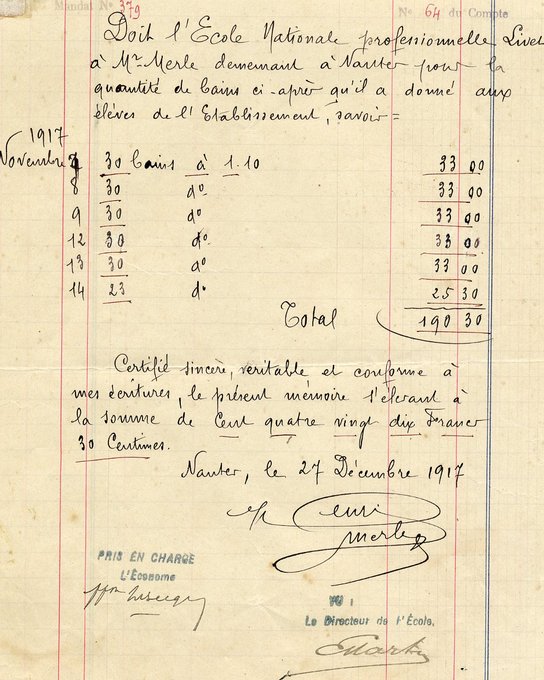 Mandat No 379
No 64 du Compte
Doit l'Ecole Nationale professionnelle Livet
à Mr Merle demeurant à Nantes pour la
quantité de bains ci-après qu'il a donné aux
élèves de l'Etablissement, savoir =
1917
Novembre 7 30 bains à 1.10 33 00
8 30 do 33 00
9 30 do 33 00
12 30 do 33 00
13 30 do 33 00
14 23 do 25 30
Total 190 30
Certifié sincère, veritable et conforme à
mes écritures, le présent mémoire s'élevant à
la somme de Cent quatre vingt dix Francs
30 Centimes.
Nantes, le 27 Décembre 1917
Merle
PRIS EN CHARGE
L'Économe
VU :
Le Directeur de l'École.